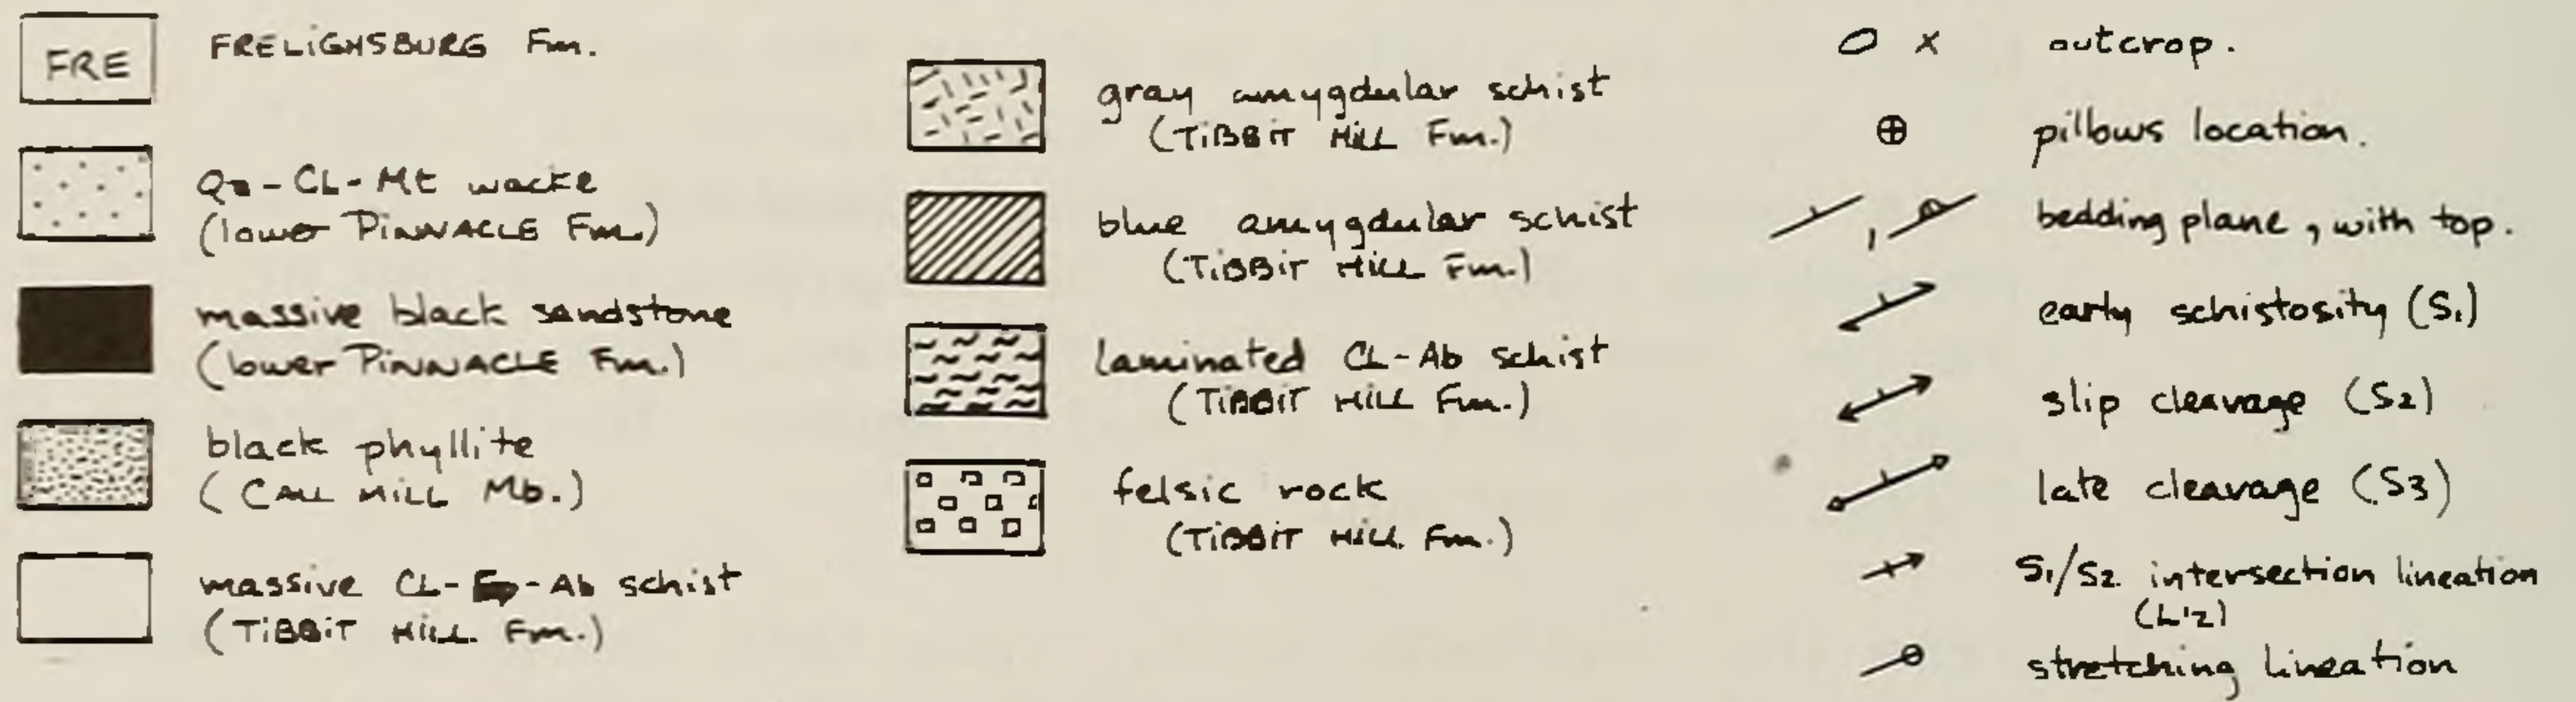 FRE
FRELIGHSBURG Fm.
Qz-CL-Mt wacke
(lower PINNACLE Fm.)
massive black sandstone
(lower PINNACLE Fm.)
black phyllite
(CALL MILL Mb.)
massive CL-Ep-Ab schist
(TIBBIT HILL Fm.)
gray amygdular schist
(TIBBIT HILL Fm.)
blue amygdular schist
(TIBBIT HILL Fm.)
laminated CL-Ab schist
(TIBBIT HILL Fm.)
felsic rock
(TIBBIT HILL Fm.)
outcrop.
pillows location.
bedding plane, with top.
early schistosity (S1)
slip cleavage (S2)
late cleavage (S3)
S1/S2 intersection lineation
(L'2)
stretching lineation